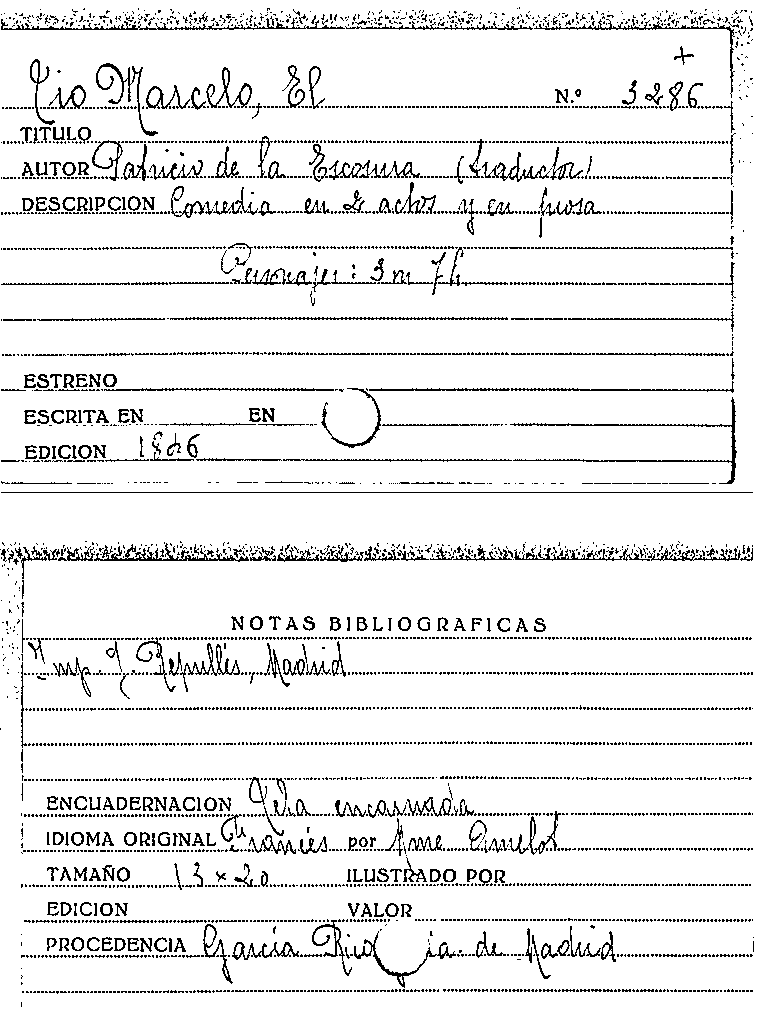 +
Tio Marcelo, El N.º 3286
TITULO
AUTOR Patricio de la Escosura (traductor)
DESCRIPCION Comedia en 2 actos y en prosa
Personajes: 3 m 7 h.
ESTRENO
ESCRITA EN EN
EDICION
NOTAS BIBLIOGRAFICAS
Imp. J. Repullés, Madrid
ENCUADERNACION Tela encarnada
IDIOMA ORIGINAL Francés por Mme Amelot
TAMAÑO 13 x 20 ILUSTRADO POR
EDICION VALOR
PROCEDENCIA García Rico de Madrid